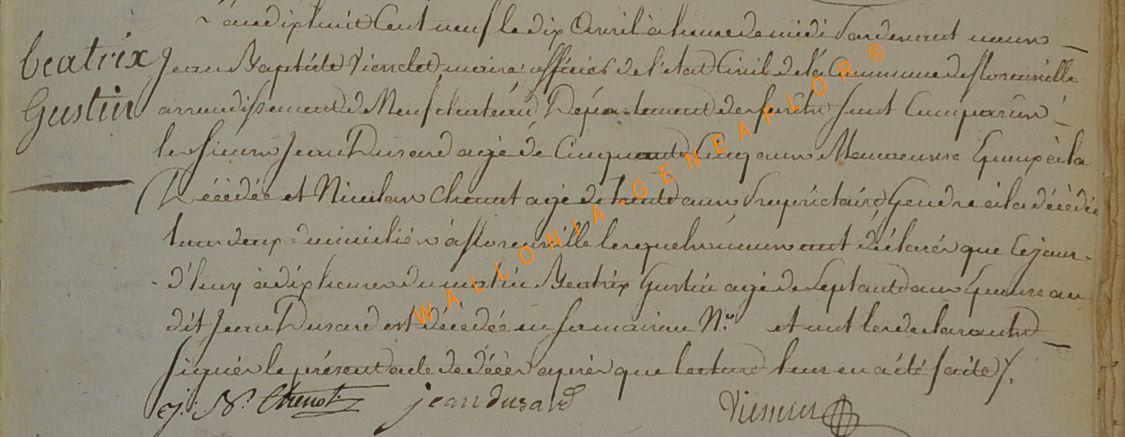 beatrix
Gustin
L'an dix huit Cent neuf le dix Avril à l'heure de midi Pardevant nous
Jean Baptiste maire officier de l'état Civil de la Commune de florenville
arrondissement de Neufchateau Département des forêts sont Comparus
les sieurs Jean Dusard agé de Cinquante Cinq ans Manoeuvre Epoux à la
Décédée et Nicolas Chenot agé de trente ans Propriétaire Gendre à la décédée
tous deux domiciliés à florenville lesquels nous ont déclarés que Cejour-
d'huy à dix heures du matin Beatrix Gustin agé de Septante ans Epouse au
dit Jean Dusard est décédée en sa maison N.° et ont les declarants
signés le présent acte de décès après que lecture leur en a été faite
j: N. Chenot jean dusard
WALLONIA-GENEAFLOR®